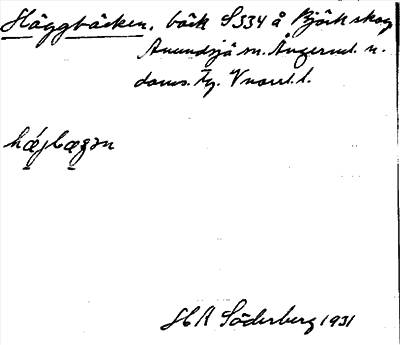 Häggbäcken, bäck S334 å Björk skog
Anundsjö sn. Ångerml. n.
doms. Tg. Vnorrl. l.
hǽjbæʒən
H R Söderberg 1931